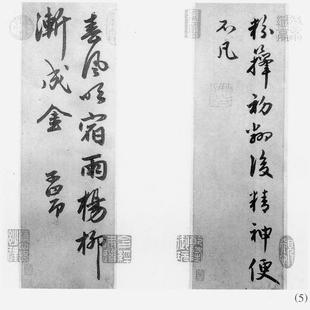 粉籜初翻後精神便
不凡
春風吹宿雨楊柳
漸成金 子昂
(5)